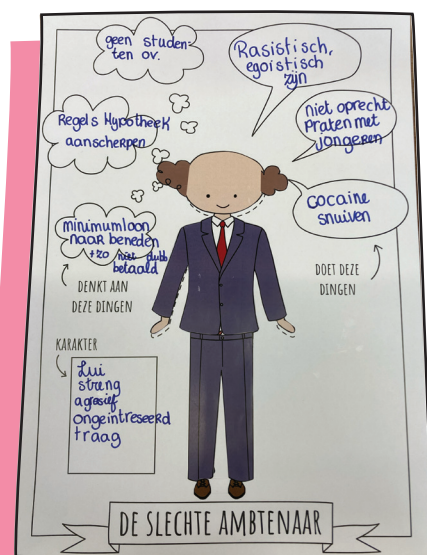 geen studen-
ten ov.
Rasistisch,
egoistisch
zijn
niet oprecht
praten met
jongeren
Regels Hypotheek
aanscherpen
cocaine
snuiven
minimumloon
naar beneden
+zo niet dubb
betaald
DENKT AAN
DEZE DINGEN
DOET DEZE
DINGEN
KARAKTER
Lui
streng
agrasief
ongeintreseerd
traag
DE SLECHTE AMBTENAAR